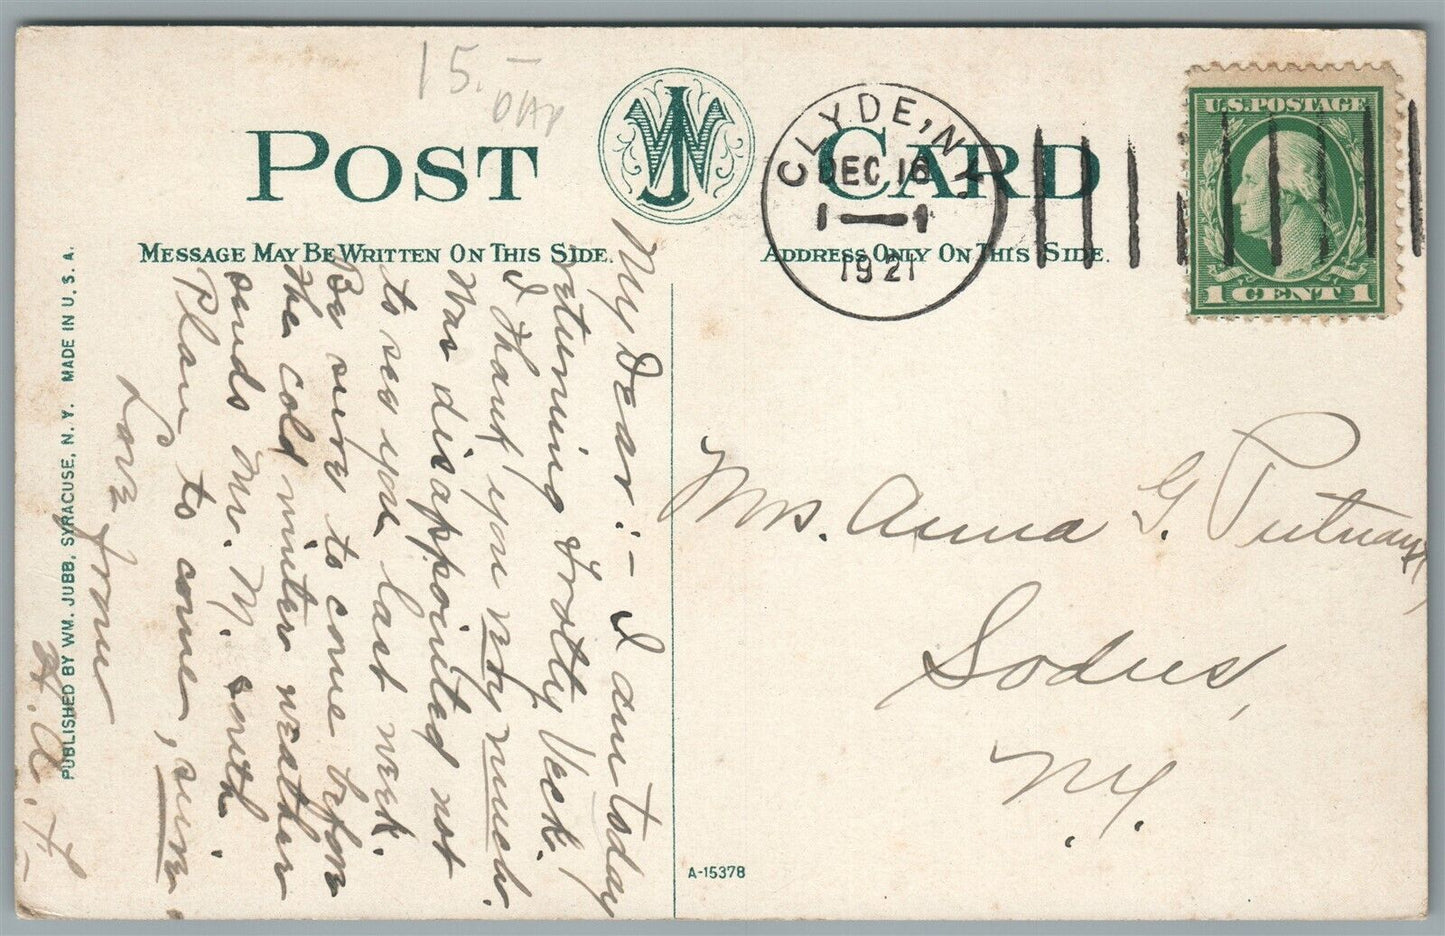 15.—
POST CARD
JW
MESSAGE MAY BE WRITTEN ON THIS SIDE.
ADDRESS ONLY ON THIS SIDE.
CLYDE, N.Y.
DEC 16
1—1
1921
U.S. POSTAGE
1 CENT 1
My Dear:— I am today
returning Trolly Veck.
I thank you very much.
Was disappointed not
to see you last week.
Be sure to come before
the cold winter weather
sends Mr. M. south
Plan to come, sure
Love from
H. A. F.
Mrs. Anna G. Putnam
Sodus,
N.Y.
A-15378
PUBLISHED BY WM. JUBB, SYRACUSE, N. Y. MADE IN U. S. A.